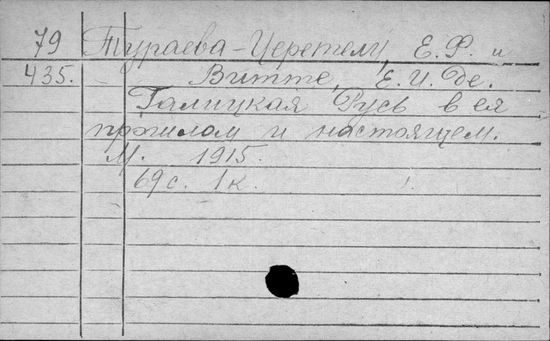 79 Тураева-Церетели, Е. Ф. и
435. Витте, Е. И. де.
Галицкая Русь в ея
прошлом и настоящем.
М. 1915.
69 с. 1 к.